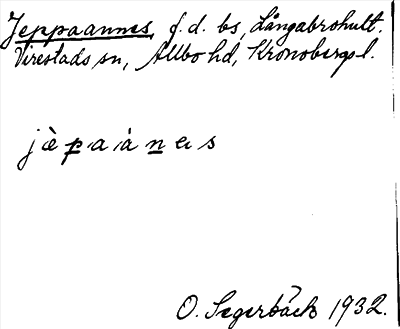 Jeppaannes, f.d. bs, Långabrohult.
Virestads sn, Allbo hd, Kronobergs l.
jèpaànes
O. Segerbäck 1932.